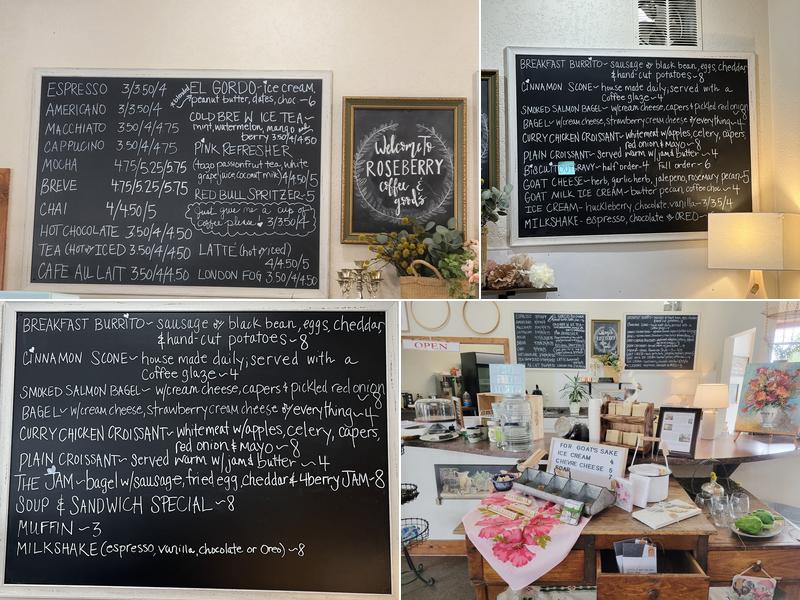 ESPRESSO 3/3.50/4
AMERICANO 3/3.50/4
MACCHIATO 3.50/4/4.75
CAPPUCINO 3.50/4/4.75
MOCHA 4.75/5.25/5.75
BREVE 4.75/5.25/5.75
CHAI 4/4.50/5
HOT CHOCOLATE 3.50/4/4.50
TEA (HOT or ICED) 3.50/4/4.50
CAFE ALL LAIT 3.50/4/4.50
EL GORDO - ice cream,
peanut butter, dates, choc ~6
COLD BREW ICE TEA~
mint, watermelon, mango or
berry 3.50/4/4.50
PINK REFRESHER
(tapo passionfruit tea, white
grape juice, coconut milk) 4/4.50/5
RED BULL SPRITZER - 5
Just give me a cup of
coffee please 3/3.50/4
LATTÉ (hot or iced)
4/4.50/5
LONDON FOG 3.50/4/4.50
Welcome to
ROSEBERRY
coffee &
goods
BREAKFAST BURRITO~ sausage or black bean, eggs, cheddar
& hand-cut potatoes ~8
CINNAMON SCONE~ house made daily, served with a
coffee glaze ~4
SMOKED SALMON BAGEL~ w/cream cheese, capers & pickled red onion
BAGEL~ w/cream cheese, strawberry cream cheese or everything ~4
CURRY CHICKEN CROISSANT~ white meat w/apples, celery, capers,
red onion & mayo ~8
PLAIN CROISSANT- served warm w/ jam & butter ~4
BISCUIT OUT GRAVY~ half order-4 Full order-6
GOAT CHEESE~ herb, garlic herb, jalapeno, rosemary pecan-5
GOAT MILK ICE CREAM~ butter pecan, coffee choc ~4
ICE CREAM~ huckleberry, chocolate, vanilla~3/3.5/4
MILKSHAKE- espresso, chocolate or OREO~
BREAKFAST BURRITO~ sausage or black bean, eggs, cheddar
& hand-cut potatoes ~8
CINNAMON SCONE~ house made daily, served with a
coffee glaze ~4
SMOKED SALMON BAGEL~ w/cream cheese, capers & pickled red onion
BAGEL~ w/cream cheese, strawberry cream cheese or everything ~4
CURRY CHICKEN CROISSANT~ white meat w/apples, celery, capers,
red onion & mayo ~8
PLAIN CROISSANT~ served warm w/ jam & butter ~4
THE JAM~ bagel w/sausage, fried egg, cheddar & 4berry JAM-8
SOUP & SANDWICH SPECIAL ~8
MUFFIN ~3
MILKSHAKE (espresso, vanilla, chocolate or Oreo) ~8
OPEN
FOR GOAT'S SAKE
ICE CREAM 4
CHEVRE CHEESE 5
SOAP